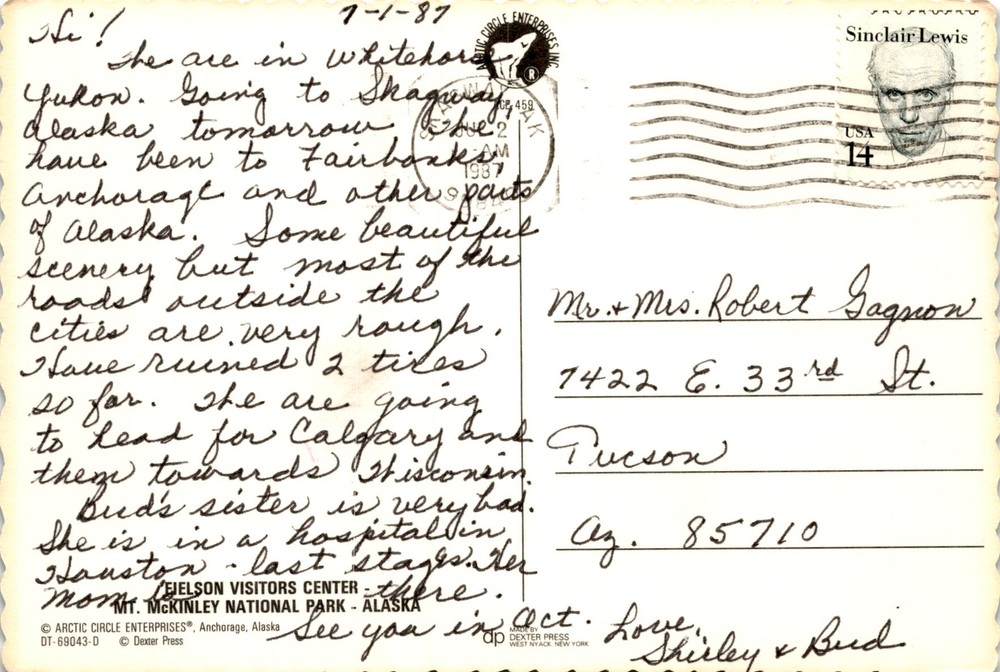 7-1-87
Hi!
We are in Whitehorse
Yukon. Going to Skagway,
Alaska tomorrow. We
have been to Fairbanks,
Anchorage and other parts
of Alaska. Some beautiful
scenery but most of the
roads outside the
cities are very rough.
Have ruined 2 tires
so far. We are going
to head for Calgary and
them towards Wisconsin.
Bud's sister is very bad.
She is in a hospital in
Houston - last stages. Her
mom is there.
See you in Oct. Love,
Shirley & Bud
EIELSON VISITORS CENTER
MT. McKINLEY NATIONAL PARK - ALASKA
© ARCTIC CIRCLE ENTERPRISES®, Anchorage, Alaska
DT-69043-D © Dexter Press
dp MADE BY
DEXTER PRESS
WEST NYACK, NEW YORK
ARCTIC CIRCLE ENTERPRISES INC.
®
ACE-459
SKAGWAY AK
JUL 2
AM
1987
Sinclair Lewis
USA
14
Mr. & Mrs. Robert Gagnon
7422 E. 33rd St.
Tucson
Az. 85710